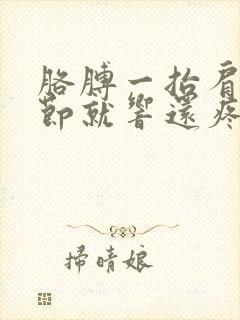 胳膊一抬肩
節就響還疼
掃晴娘